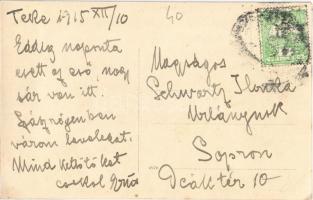 Teke 1915 XII/10
40
Eddig naponta
esett az eső, nagy
sár van itt.
Szászrégenben
várom leveleket.
Mind kettőtöket
csókol
Nagyságos
Schwartz Ilonka
Urhölgynek
Sopron
Deák tér 10